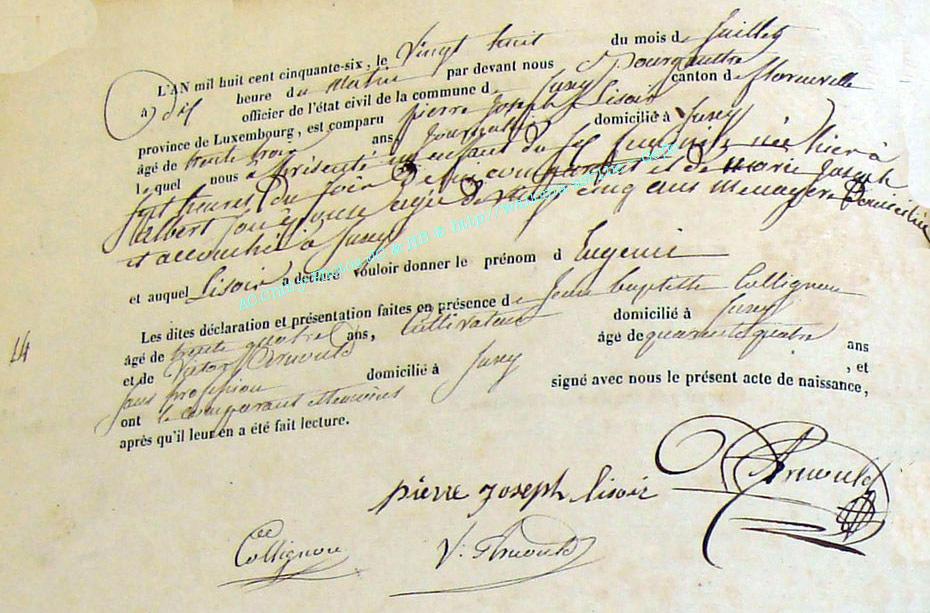 L'AN mil huit cent cinquante-six, le Vingt huit du mois de Juillet
à dix heure du Matin par devant nous Bourgmestre
officier de l'état civil de la commune de Jusey canton de florenville
province de Luxembourg, est comparu pierre Joseph Lisoir
âgé de trente trois ans Journalier domicilié à Jusey
lequel nous a présenté un enfant du sexe feminin née hier à
sept heures du soir de lui comparant et de marie Joseph
Halbert son épouse agée de vingt cinq ans menagère Domiciliée
et accouchée à Jusey
et auquel Lisoir a déclaré vouloir donner le prénom d Eugenie
Les dites déclaration et présentation faites en présence de Jean baptiste Collignon
âgé de trente quatre ans, Cultivateur domicilié à Jusey
et de Victor Arnould âgé de quarante quatre ans
sans profession domicilié à Jusey , et
ont le comparant et temoins signé avec nous le présent acte de naissance,
après qu'il leur en a été fait lecture.
14
pierre Joseph lisoir Arnould
Collignon V. Arnould